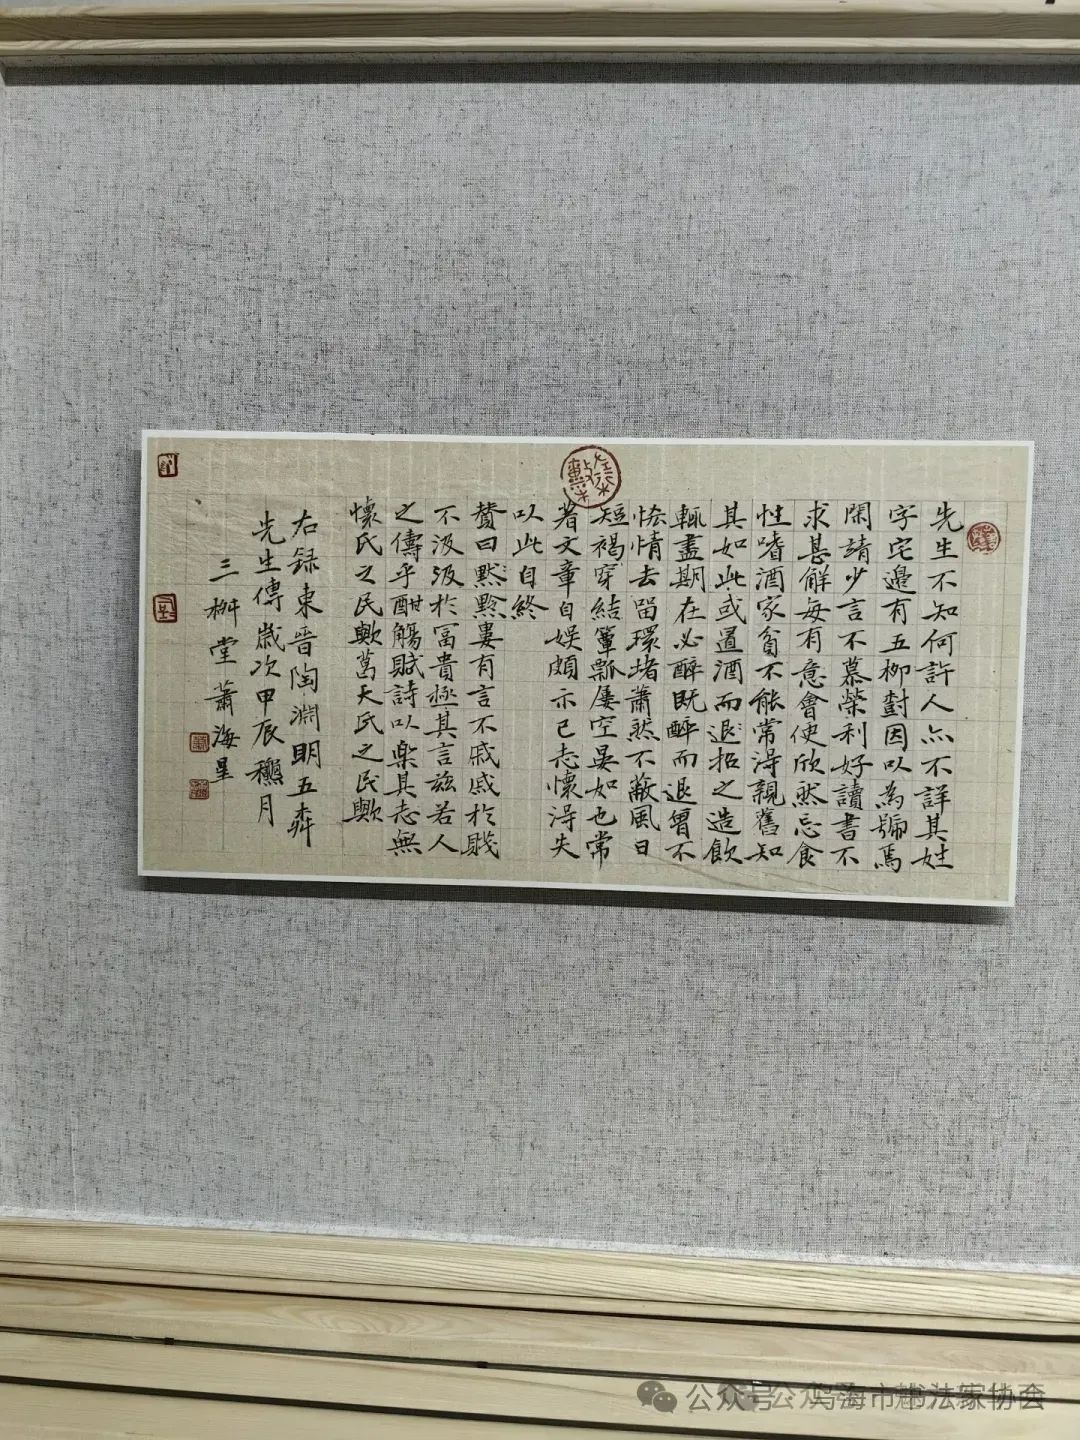 先生不知何許人亦不詳其姓
字宅邊有五柳對因以為號焉
閑靖少言不慕榮利好讀書不
求甚解每有意會便欣然忘食
性嗜酒家貧不能常得親舊知
其如此或置酒而退招之造飲
輒盡期在必醉既醉而退曾不
恡情去留環堵蕭然不蔽風日
短褐穿結簞瓢屢空晏如也常
著文章自娛頗示己志懷得失
以此自終
贊曰黔婁有言不戚戚於賤
不汲汲於富貴極其言茲若人
之儔乎酣觴賦詩以樂其志無
懷氏之民歟葛天氏之民歟
右録東晉陶淵明五
先生傳歲次甲辰龝月
三堂蕭海星
公众号 乌海市书法家协会